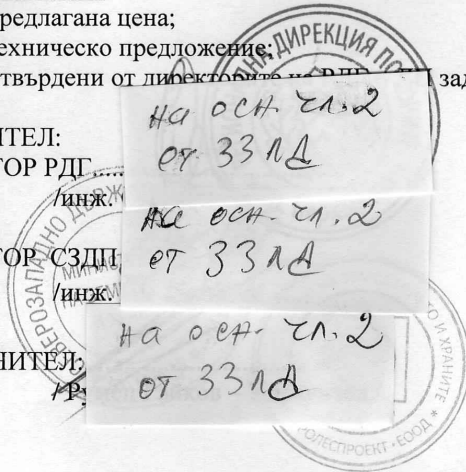 редлагана цена;
ехническо предложение;
твърдени от директорите на РДГ зад
ИТЕЛ:
ТОР РДГ.....
/инж.
на осн. чл. 2
от ЗЗЛД
ТОР СЗДП
/инж.
на осн. чл. 2
от ЗЗЛД
НИТЕЛ:
на осн. чл. 2
от ЗЗЛД
ДИРЕКЦИЯ ПО
ВЕРОЗАПАДНО ДЪРЖ
О И ХРАНИТЕ
ОЛЕСПРОЕКТ - ЕООД *